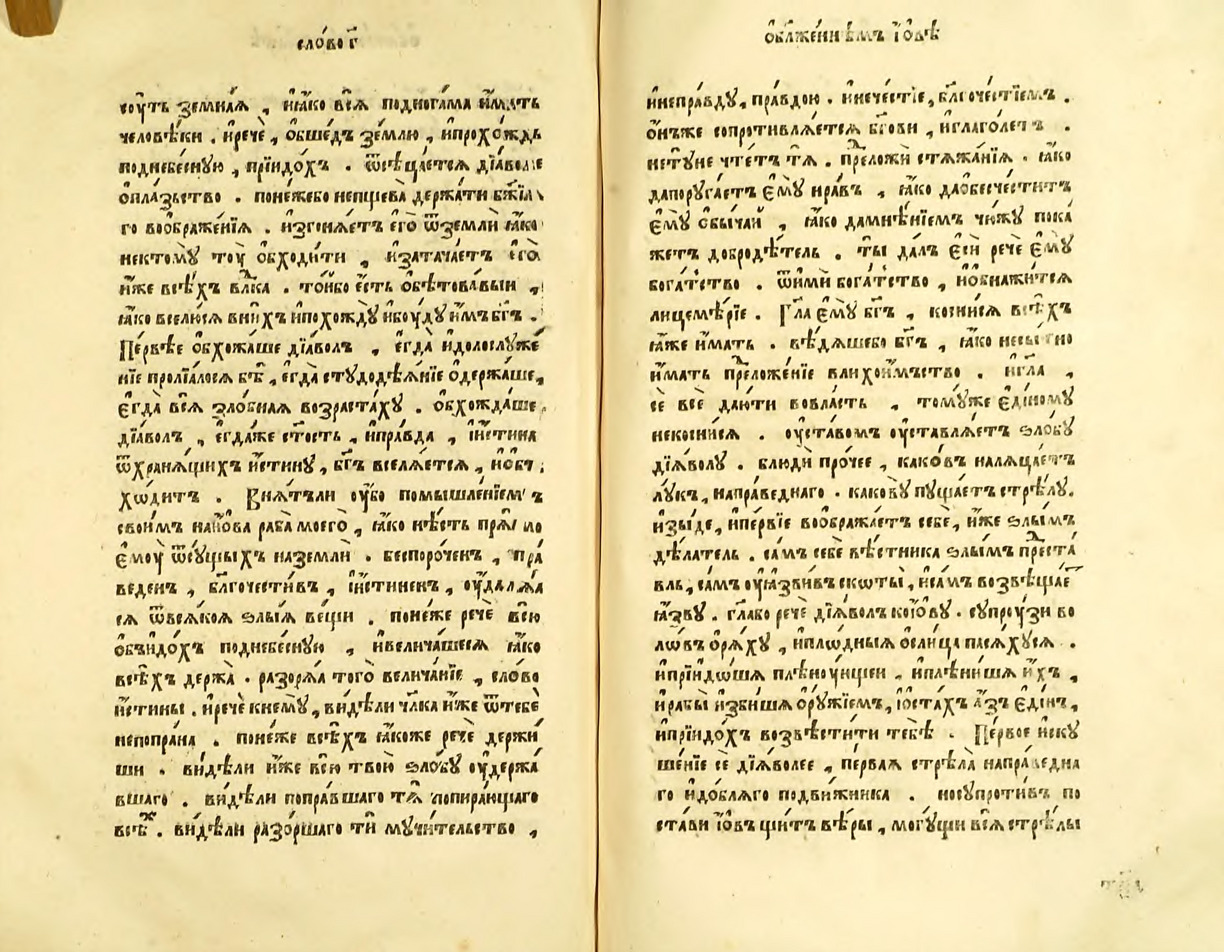 сло́во г҃
соу́ть земна́ѧ , ꙗ҆́ко всѧ̀ подногама и҆́мать
человѣ́ки . и҆речѐ , ѻ҆бше́дъ зе́млю , и҆прохо́ждь
поднебе́сную , прїидо́хъ . ѿвѣща́етсѧ дїа́воле
ѻ҆пла́зьство . поне́жебо непщева̀ держа́ти бж҃їѧ
го воѡбраже́нїѧ . и҆згонѧ́етъ є҆го̀ ѿземлѝ ꙗ҆́ко
нектомꙋ̀ тоу̀ ѻ҆бходи́ти , и҆зата́чаетъ є҆го̀
и҆́же всѣ́хъ влⷣка . то́ибо є҆́сть ѻ҆бѣтова́выи ,
ꙗ҆́ко вселю́сѧ вни́хъ и҆похождꙋ̀ и҆боу́дꙋ и҆́мъ бг҃ъ .
Пе́рвѣе ѻ҆бхожа́ше дїа́волъ , є҆гда̀ и҆долослꙋже́
нїе пролїа́лосѧ бѣ̀ , є҆гда̀ стꙋдодѣѧ́нїе ѻ҆держа́ше ,
є҆гда̀ всѧ̀ ѕло́бнаѧ возраста́хꙋ . ѻ҆бхожда́ше
дїа́волъ , є҆гда́же ст҃ость , и҆пра́вда , и҆и҆́стина
ѿхранѧ́щихъ и҆́стинꙋ , бг҃ъ вселѧ́етсѧ , и҆ѻ҆б
хѡ́дитъ . Внѧ́тъли оу҆̀бо помышле́нїемъ
свои́мъ наи҆́ова раба̀ моего̀ , ꙗ҆́ко нѣ́сть
є҆моу̀ ѿсꙋ́щыхъ наземлѝ . беспоро́ченъ , пра́
веденъ , бл҃гочести́въ , і҆и҆́стиненъ , оу҆далѧ́ѧ
сѧ ѿвсѧ́коѧ ѕлы́ѧ ве́щи . поне́же речѐ всю̀
ѻ҆бъидо́хъ поднебе́сную , и҆велича́шесѧ ꙗ҆́ко
всѣ́хъ держа̀ . разорѧ́ѧ того̀ велича́нїе , сло́во
и҆́стины . и҆речѐ кнемꙋ̀ , ви́дѣли чл҃ка и҆́же ѿтебѐ
непопра́на . поне́же всѣ́хъ ꙗ҆́коже речѐ держи́
ши . ви́дѣли и҆́же всю̀ твою̀ ѕло́бꙋ оу҆держа́
вшаго . ви́дѣли попра́вшаго тѧ̀ попира́ющаго
всѣ́ⷯ . ви́дѣли разо́ршаго тѝ мꙋчи́тельство ,
ѻ҆блаже́ннѣмъ і҆́ѡвѣ
и҆непра́вдꙋ , пра́вдою . и҆нече́стїе , бл҃гоче́стїемъ .
ѻ҆́нъже сопротивлѧ́етсѧ бг҃ови , и҆глаго́летъ .
нетꙋ́не чте́тъ тѧ̀ . преложѝ стѧжа́нїѧ . ꙗ҆́ко
дапорꙋга́етъ є҆мꙋ̀ нра́въ , ꙗ҆́ко даѻ҆бесче́ститъ
є҆мꙋ̀ ѻ҆бы́чаи , ꙗ҆́ко дамнѣ́нїемъ чю́жꙋ пока́
жетъ добродѣ́тель . ты̀ да́лъ є҆сѝ речѐ є҆мꙋ̀
бога́тство . ѿимѝ бога́тство , и҆ѻ҆бнажи́тсѧ
лицемѣ́рїе . Гл҃а є҆мꙋ̀ бг҃ъ , косни́сѧ всѣ́хъ
ꙗ҆́же и҆́мать . вѣ́дѧшебо бг҃ъ , ꙗ҆́ко несы́тно
и҆́мать преложе́нїе влихои́мьство . и҆гл҃а ,
сѐ всѐ даю́ти вовла́сть , томꙋ́же є҆ди́номꙋ
некосни́сѧ . оу҆ста́вомъ оу҆ставлѧ́етъ ѕло́бꙋ
дїѧ́волꙋ . блюдѝ про́чее , како́въ налѧца́етъ
лꙋ́къ , направеднаго . каковꙋ̀ пꙋща́етъ стрѣлꙋ̀ .
и҆зы́де , и҆пе́рвїе воѡбража́етъ себѐ , и҆́же ѕлы́мъ
дѣ́латель . са́мъ себѐ вѣ́стника ѕлы́мъ преста́
вль , са́мъ оу҆ꙗ҆́звивъ скоты̀ , и҆са́мъ возвѣща́еⷮ
ꙗ҆́звꙋ . гл҃ако речѐ дїѧ́волъ коі҆́овꙋ . сꙋпрꙋ́зи во
ло́въ ѻ҆рѧ́хꙋ , и҆пло́дныѧ ѻ҆сли́ца пасѧ́хꙋсѧ .
и҆прїидо́шѧ плѣноу́ющеи , и҆плѣни́шѧ и҆́хъ ,
и҆рабы̀ и҆зби́шѧ ѻ҆рꙋ́жїемъ , і҆ѻ҆ста́хъ а҆́зъ є҆ди́нъ ,
и҆прїидо́хъ возвѣсти́ти тебѣ̀ . Пе́рвое и҆скꙋ
ше́нїе сѐ дїѧ́волее , пе́рваѧ стрѣла̀ напра́ведна
го и҆до́блѧго подви́жника . носꙋпроти́въ по
ста́ви і҆́ѡвъ щи́тъ вѣ́ры , могꙋ́щи всѧ̀ стрѣ́лы